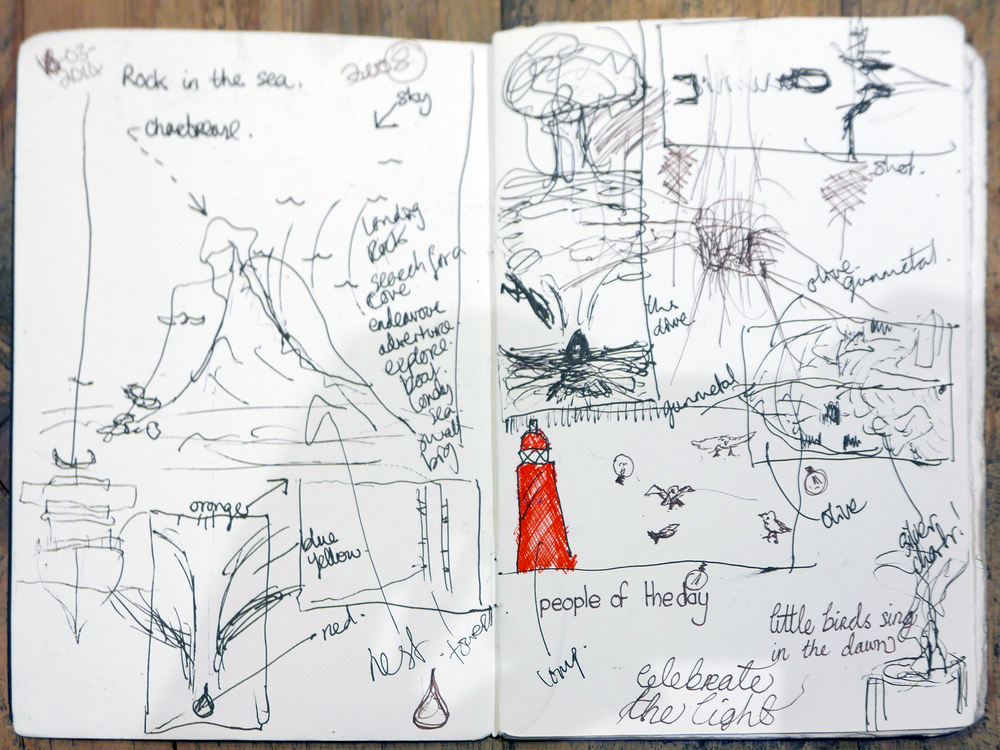 03-
2014
Rock in the sea.
sky
landing
Rock
search for a
cove
endeavore
adventure.
explore.
boat.
landy
sea
swell
big
oranges
blue
yellow.
red.
nest.
towers
shot.
olive
gunmetal.
the
dive.
gunmetal
olive
silver
people of the day
little birds sing
in the dawn
celebrate
the light